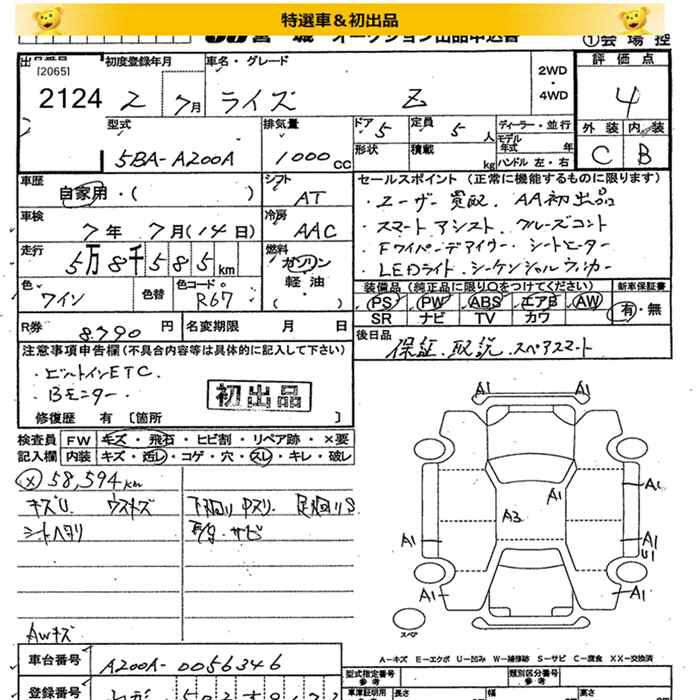 特選車＆初出品
JU 宮城 オークション出品申込書
①会場控
出品番号 初度登録年月 車名・グレード 2WD・4WD 評価点
[2065]
2124 2 7月 ライズ Z 4
型式 排気量 ドア 5 定員 5人 ディーラー・並行 外装 内装
5BA-A200A 1000cc 形状 積載 kg モデル年式 年 ハンドル 左・右 C B
車歴 自家用・( ) シフト AT セールスポイント（正常に機能するものに限ります）
・ユーザー買取 AA初出品
車検 7年 7月(14日) 冷房 AAC ・スマートアシスト クルーズコント
走行 5万8千585km 燃料 ガソリン 軽油 ・( ) ・Fワイパーデアイサー シートヒーター
・LEDライト シーケンシャルウィンカー
色 ワイン 色替 色コード R67 装備品（純正品に限り○をつけてください） 新車保証書
PS PW ABS エアB AW 有・無
SR ナビ TV カワ
R券 8,790円 名変期限 月 日 後日品
保証. 取説. スペアスマート
注意事項申告欄（不具合内容等は具体的に記入して下さい）
・ビルトインETC
・Bモニター
初出品
修復歴 有 〔箇所 〕
検査員 FW キズ・飛石・ヒビ割・リペア跡・×要
記入欄 内装 キズ・汚レ・コゲ・穴・スレ・キレ・破レ
ⓧ 58,594km
キズU ウスキズ 下廻りサビ 足廻りS
シートヘタリ サビ
AWキズ
A1 A1
A1 A1
A3
A1 A1 U1
A1 A1
スペア
A－キズ E－エクボ U－凹み W－補修跡 S－サビ C－腐食 XX－交換済
車台番号 A200A-0056346
型式指定番号 類別区分番号
登録番号 車庫証明用参考 長さ 幅 高さ